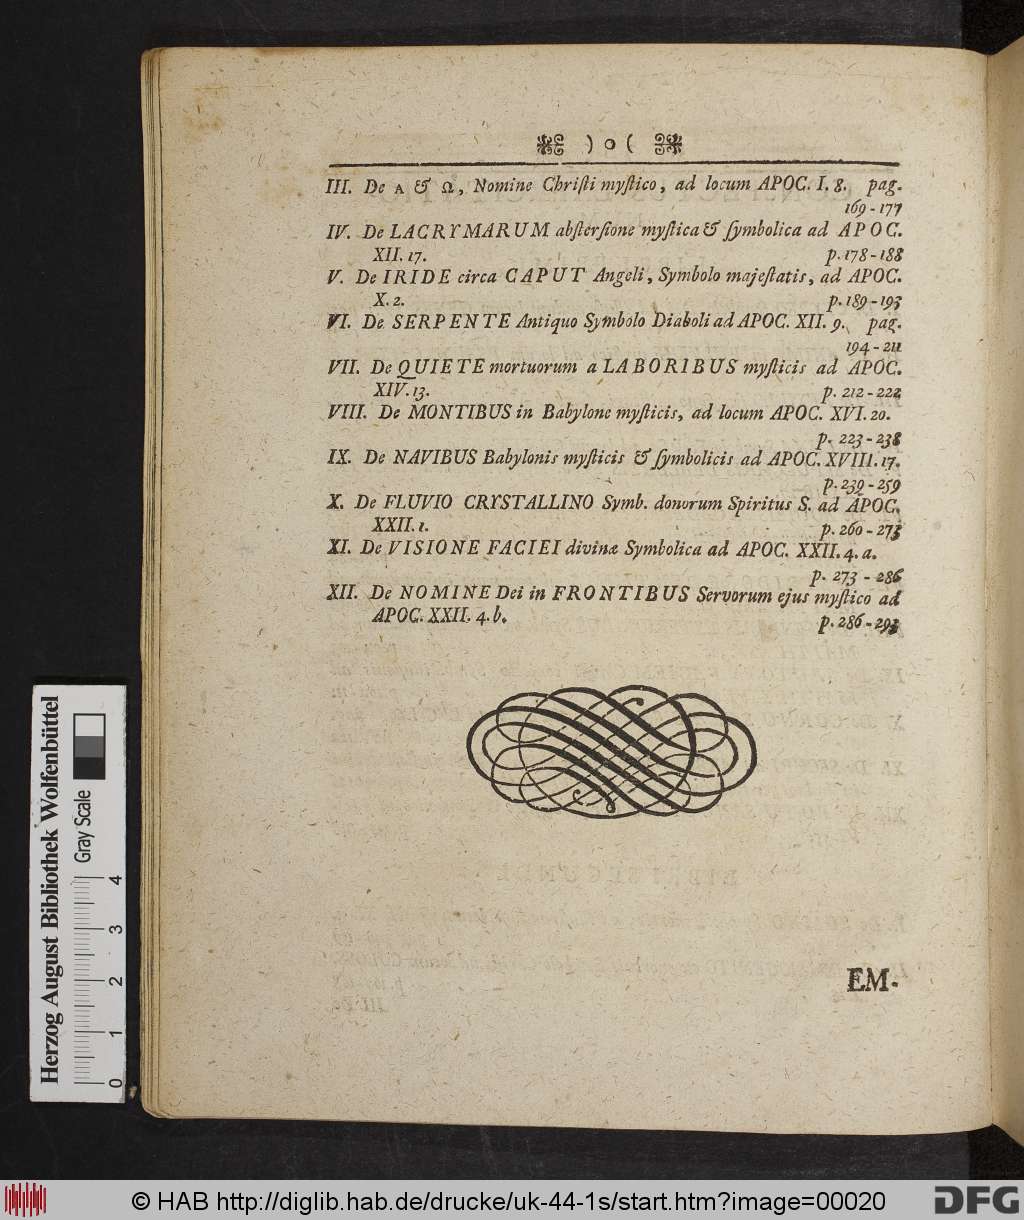 ) o (
III. De A & Ω, Nomine Chriſti myſtico, ad locum APOC. I. 8. pag.
169-177
IV. De LACRYMARUM abſterſione myſtica & ſymbolica ad APOC.
XII. 17. p. 178-188
V. De IRIDE circa CAPUT Angeli, Symbolo majeſtatis, ad APOC.
X. 2. p. 189-193
VI. De SERPENTE Antiquo Symbolo Diaboli ad APOC. XII. 9. pag.
194-211
VII. De QUIETE mortuorum a LABORIBUS myſticis ad APOC.
XIV. 13. p. 212-222
VIII. De MONTIBUS in Babylone myſticis, ad locum APOC. XVI. 20.
p. 223-238
IX. De NAVIBUS Babylonis myſticis & ſymbolicis ad APOC. XVIII. 17.
p. 239-259
X. De FLUVIO CRYSTALLINO Symb. donorum Spiritus S. ad APOC.
XXII. 1. p. 260-273
XI. De VISIONE FACIEI divinæ Symbolica ad APOC. XXII. 4. a.
p. 273-286
XII. De NOMINE Dei in FRONTIBUS Servorum ejus myſtico ad
APOC. XXII. 4. b. p. 286-293
EM-
Herzog August Bibliothek Wolfenbüttel
Gray Scale
0 1 2 3 4
© HAB http://diglib.hab.de/drucke/uk-44-1s/start.htm?image=00020
DFG